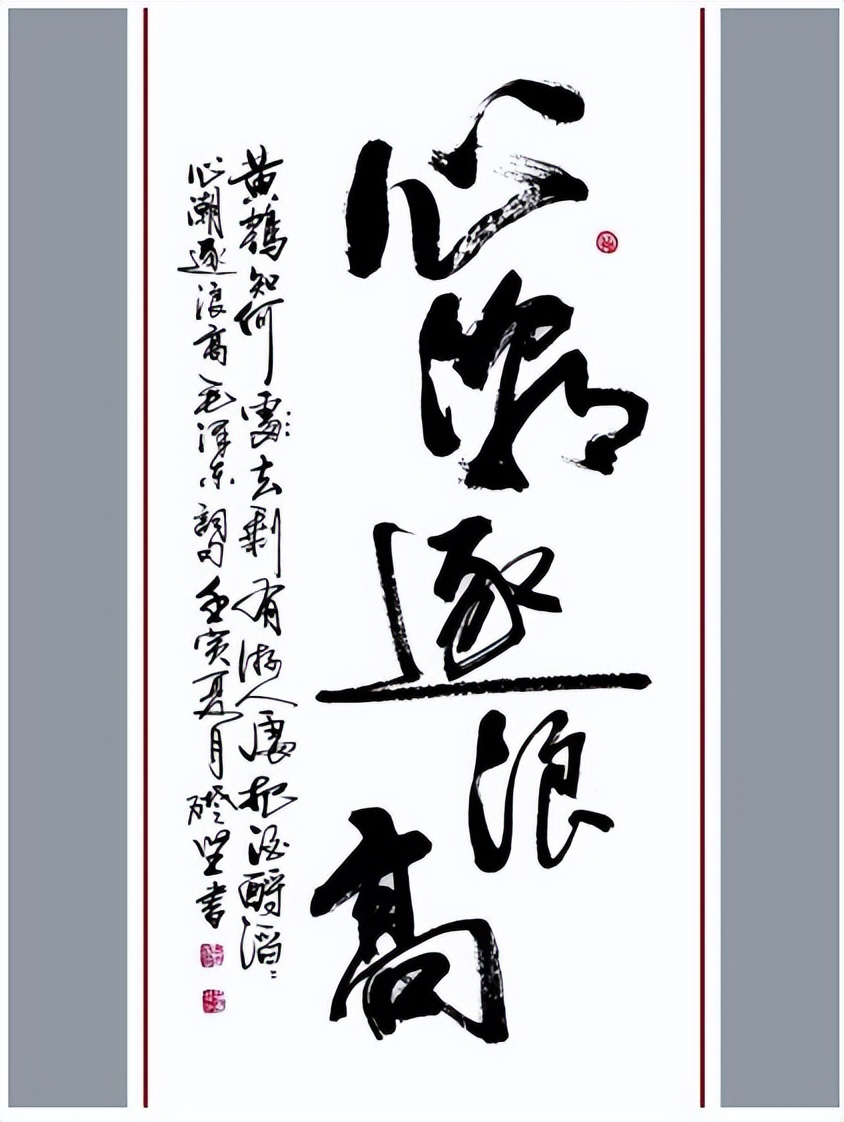 心潮逐浪高
黄鹤知何处去剩有游人处把酒酹滔滔
心潮逐浪高毛泽东词句壬寅夏月 坚书